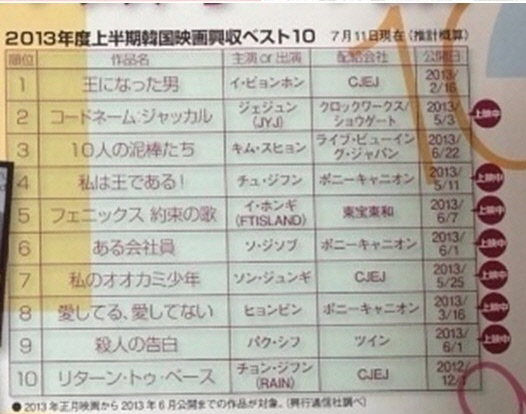 2013年度上半期韓国映画興収ベスト10 7月11日現在(推計概算)
順位 作品名 主演or出演 配給会社 公開日
1 王になった男 イ・ビョンホン CJEJ 2013/2/16
2 コードネーム:ジャッカル ジェジュン(JYJ) クロックワークス/ショウゲート 2013/5/3 上映中
3 10人の泥棒たち キム・スヒョン ライブ・ビューイング・ジャパン 2013/6/22
4 私は王である! チュ・ジフン ポニーキャニオン 2013/5/11 上映中
5 フェニックス 約束の歌 イ・ホンギ(FTISLAND) 東宝東和 2013/6/7 上映中
6 ある会社員 ソ・ジソブ ポニーキャニオン 2013/6/1 上映中
7 私のオオカミ少年 ソン・ジュンギ CJEJ 2013/5/25 上映中
8 愛してる、愛してない ヒョンビン ポニーキャニオン 2013/3/16 上映中
9 殺人の告白 パク・シフ ツイン 2013/6/1 上映中
10 リターン・トゥ・ベース チョン・ジフン(RAIN) CJEJ 2012/12/1
●2013年正月映画から2013年6月公開までの作品が対象。(興行通信社調べ)